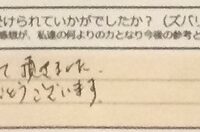 受けられていかがでしたか？（ズバリ
感想が、私達の何よりの力となり今後の参考と
て頂きました
とうございます。